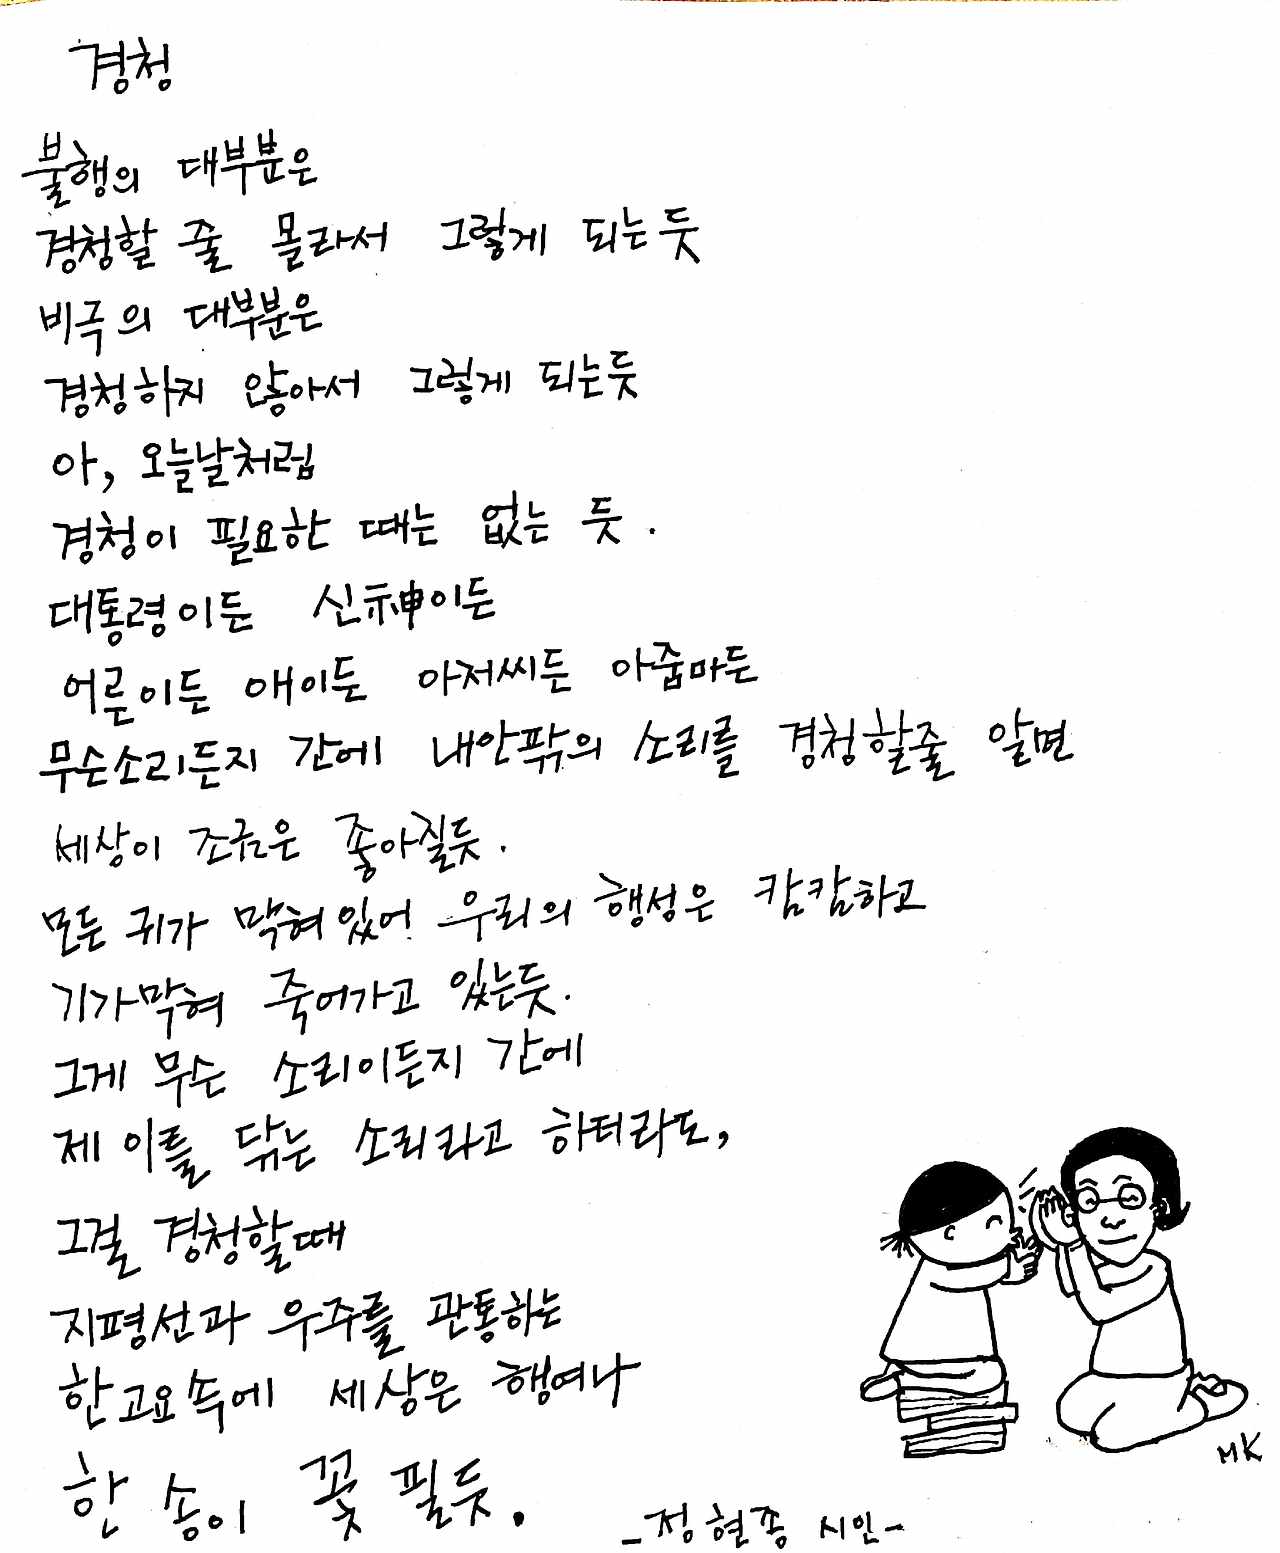 경청
불행의 대부분은
경청할 줄 몰라서 그렇게 되는듯
비극의 대부분은
경청하지 않아서 그렇게 되는듯
아, 오늘날처럼
경청이 필요한 때는 없는 듯.
대통령이든 신神이든
어른이든 애이든 아저씨든 아줌마든
무슨소리든지 간에 내안팎의 소리를 경청할줄 알면
세상이 조금은 좋아질듯.
모든 귀가 막혀있어 우리의 행성은 캄캄하고
기가막혀 죽어가고 있는듯.
그게 무슨 소리이든지 간에
제 이를 닦는 소리라고 하터라도,
그걸 경청할때
지평선과 우주를 관통하는
한고요속에 세상은 행여나
한 송이 꽃 필듯.
-정현종 시인-
MK